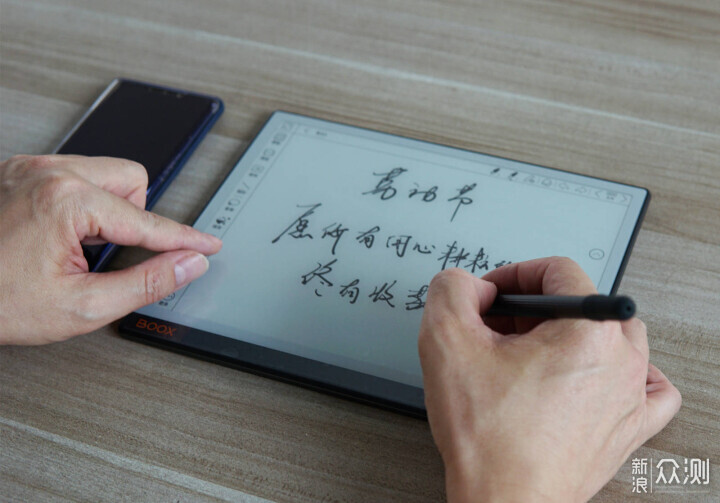 劳动节
愿所有用心耕耘
终有收获
BOOX
新浪 众测